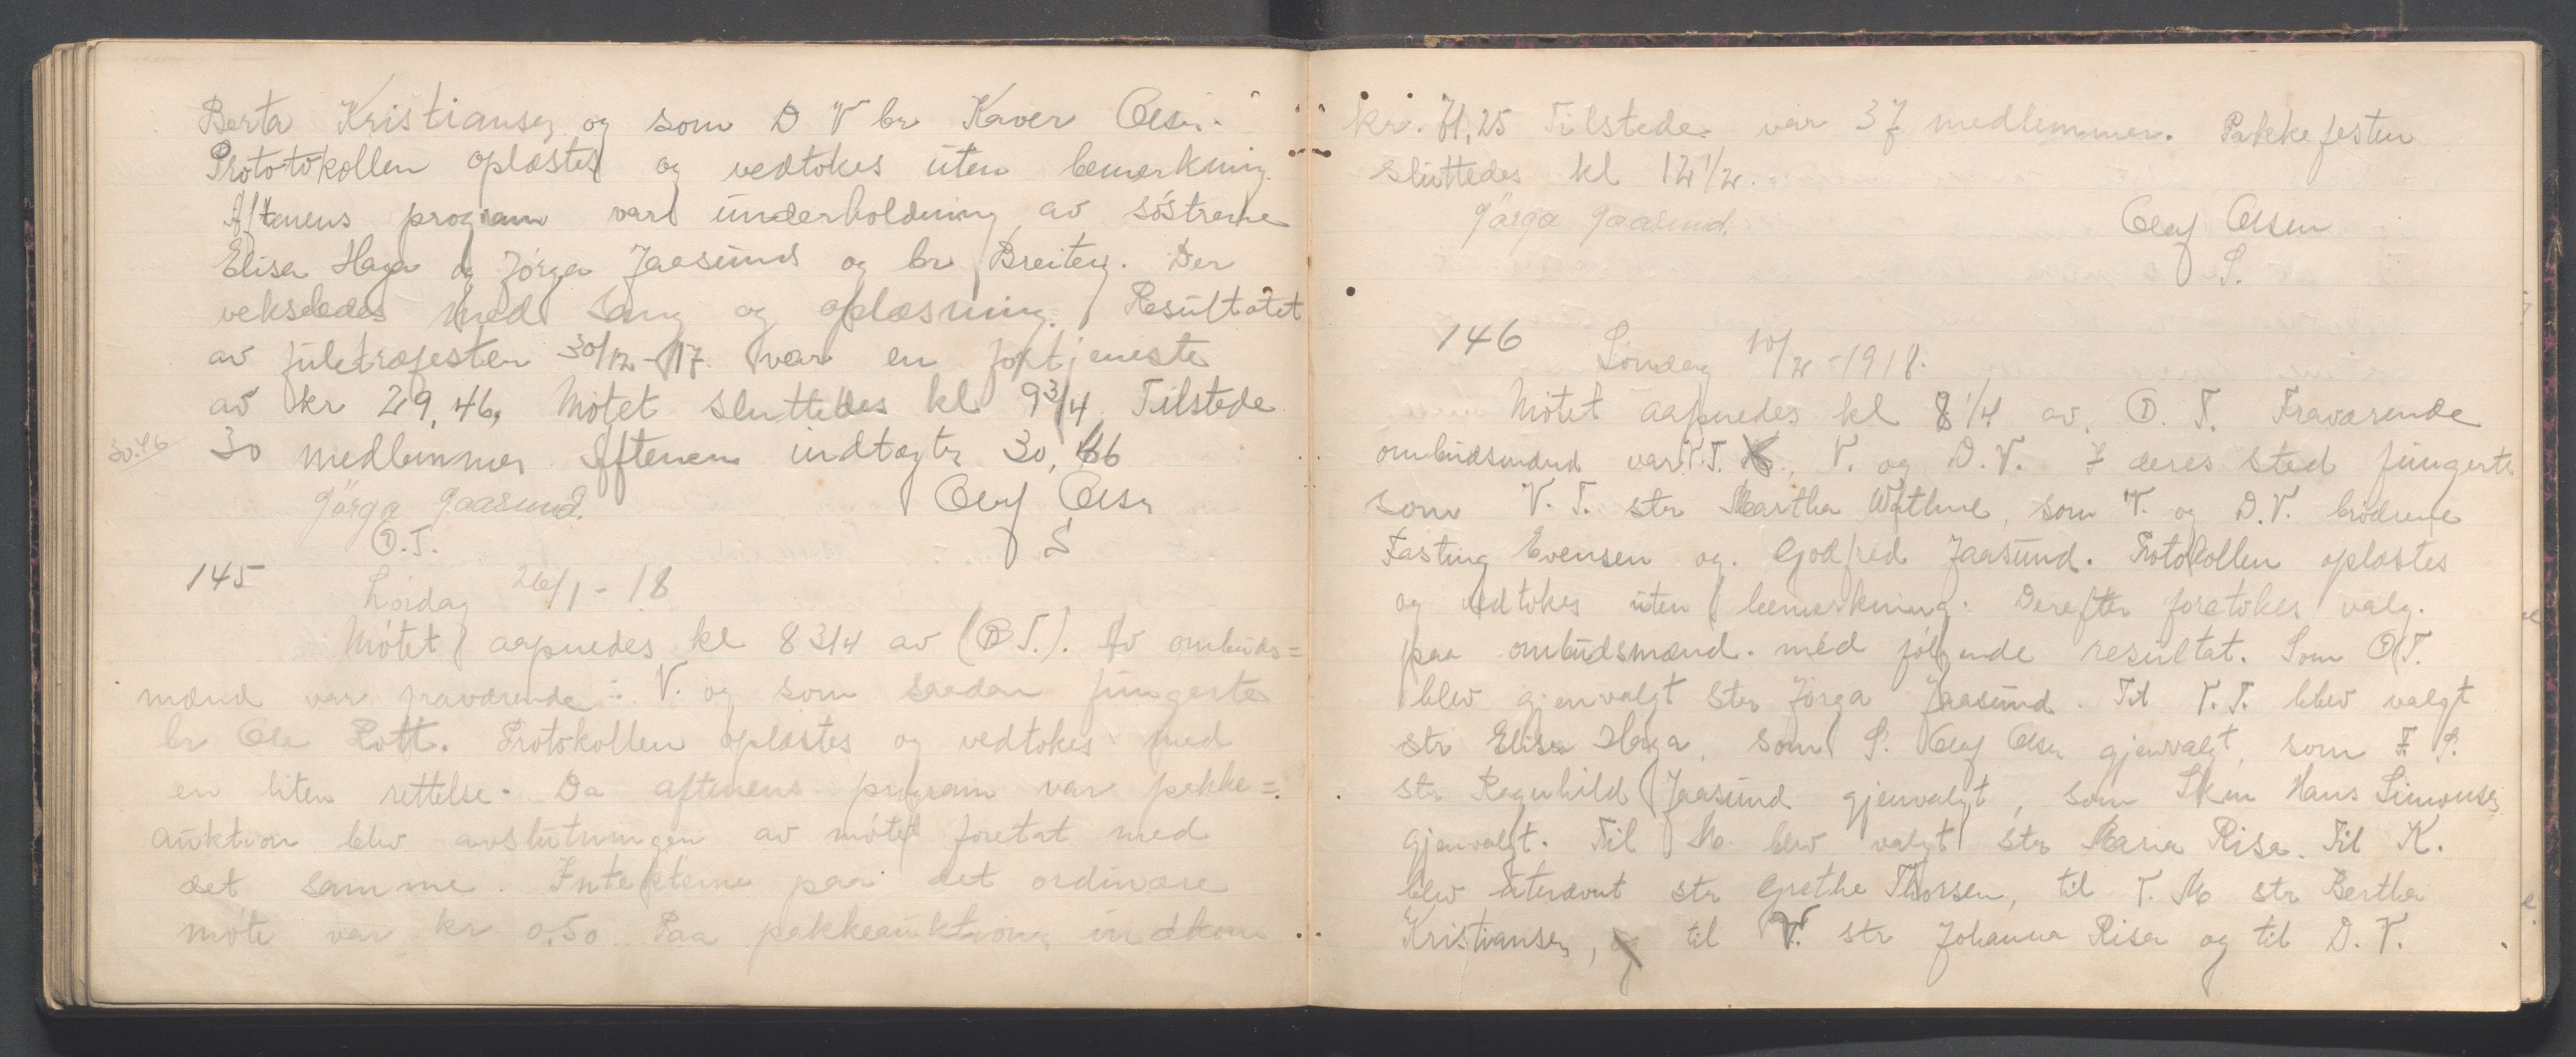 Berta Kristiansen og som D V br Kaver Olsen.
Prototokollen oplæstes og vedtokes uten bemerkning.
Aftenens program var underholdning av søstrene
Elisa Haga og Jörga Jaasund og br Breiten. Der
vekseledes med sang og oplæsning. Resultatet
av juletræfesten 30/12-17 var en fortjeneste
av kr 29,46, Møtet sluttedes kl 9 3/4 Tilstede
30.46 30 medlemmer Aftenen indtægter 30,46
Jörga Jaasund. Olaf Olsen
D.T. S
145 Lördag 26/1-18
Møtet aapnedes kl 8 3/4 av (D T.). Av ombuds=
mænd var fraværende: V. og som saadan fungerte
br Ole Pott. Protokollen oplæstes og vedtokes med
en liten rettelse. Da aftenens program var pakke=
auktion blev avslutningen av møtet foretat med
det samme. Intekterne paa det ordinære
møte var kr 0,50. Paa pakkeauktion indkom
kr. 71,25 Tilstede var 37 medlemmer. Pakkefesten
sluttedes kl 12 1/2.
Jörga Jaasund. Olaf Olsen
S.
146 Söndag 10/2-1918.
Møtet aapnedes kl 8 1/4 av D. T. Fraværende
ombudsmænd var V.T., V. og D.V. I deres sted fungerte
som V. T. str Martha Wathne, som V. og D.V. brødrene
Fasting Evensen og. Godfred Jaasund. Protokollen oplæstes
og vedtokes uten bemerkning. Derefter foretokes valg.
paa ombudsmænd. med følgende resultat. Som D T.
blev gjenvalgt str Jörga Jaasund. Til V.T. blev valgt
str Elisa Haga, som S. Olaf Olsen gjenvalgt, som F S.
str Ragnhild Jaasund gjenvalgt, som Skm Hans Simonsen
gjenvalgt. Til M. blev valgt str Maria Risa. Til K.
blev utnævnt str Grethe Thorsen, til V. M str Bertha
Kristiansen, og til V. str Johanna Risa og til D. V.